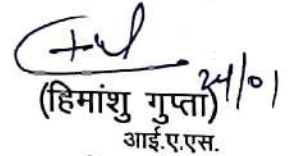 (हिमांशु गुप्ता) 24/01
आई.ए.एस.